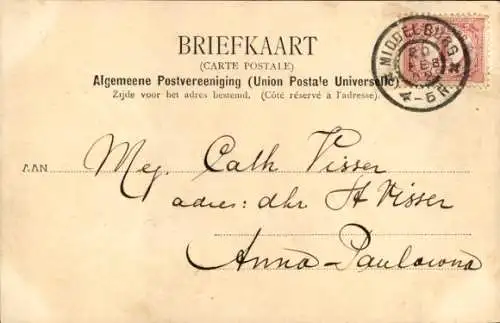 BRIEFKAART
(CARTE POSTALE)
Algemeene Postvereeniging (Union Postale Universelle)
Zijde voor het adres bestemd. (Côté réservé à l'adresse).
MIDDELBURG
20 FEB
4-5 N
AAN Mej. Cath Visser
adres: dhr St Visser
Anna-Paulowna